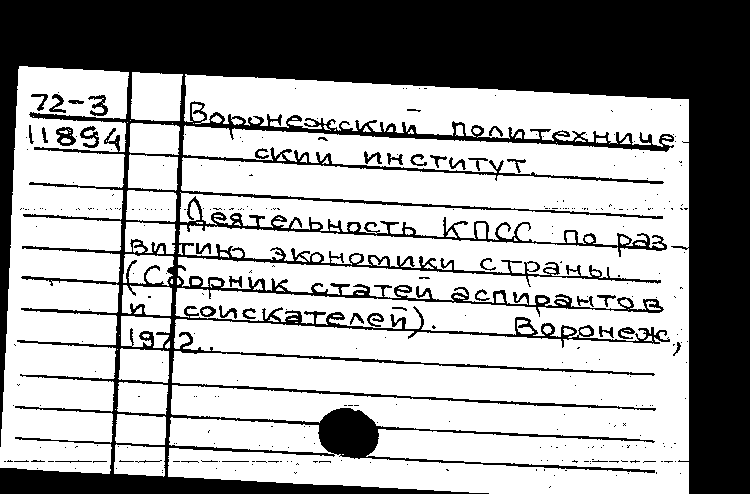 72-3
11894
Воронежский политехниче
ский институт.
Деятельность КПСС по раз-
витию экономики страны.
(Сборник статей аспирантов
и соискателей). Воронеж,
1972..